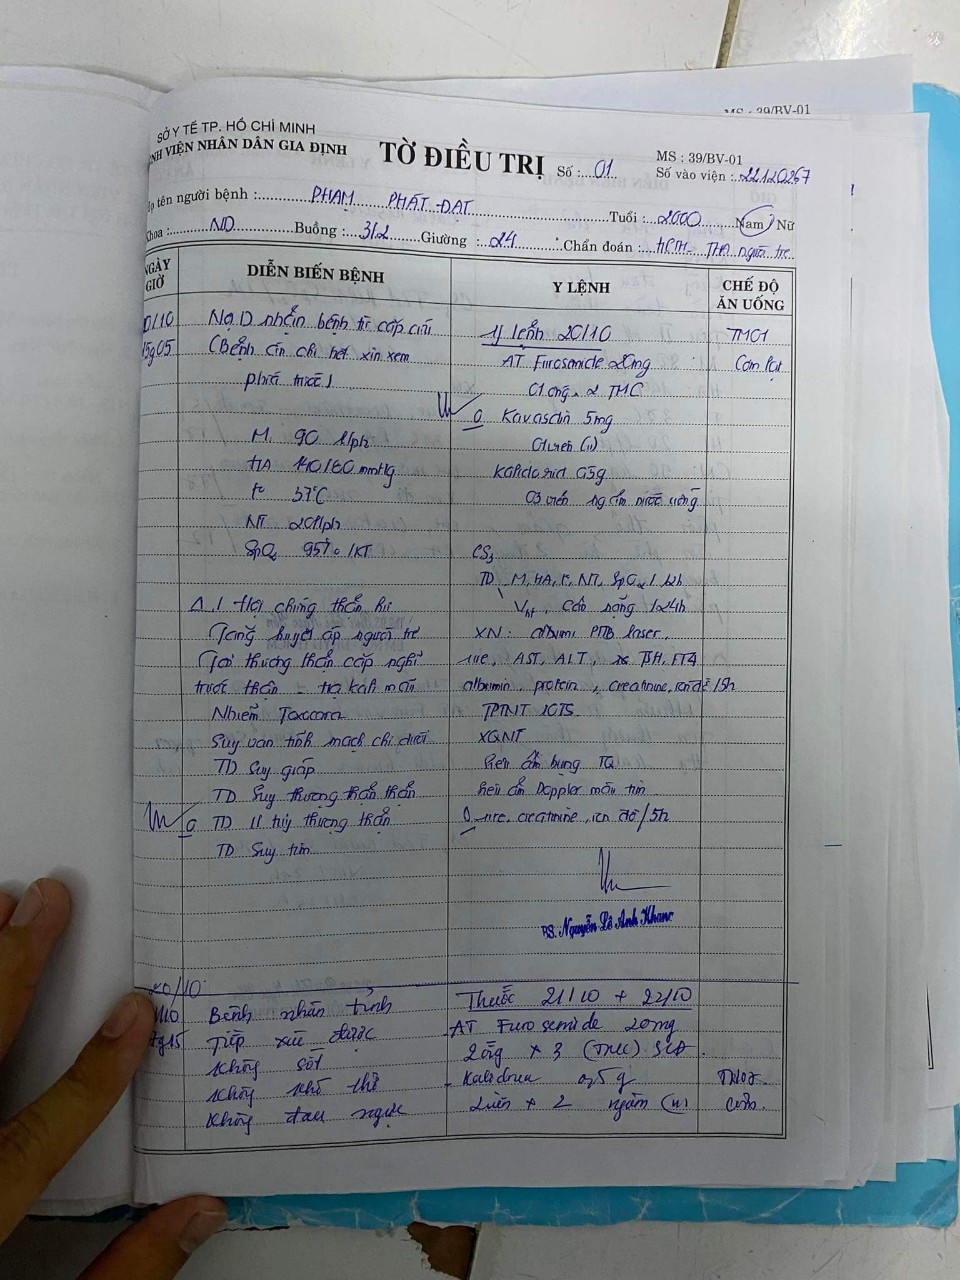 MS : 39/BV-01
SỞ Y TẾ TP. HỒ CHÍ MINH
NH VIỆN NHÂN DÂN GIA ĐỊNH
TỜ ĐIỀU TRỊ
Số : 01
MS : 39/BV-01
Số vào viện : 22120267
tên người bệnh : PHẠM PHÁT ĐẠT Tuổi : 2000 Nam / Nữ
Khoa : ND Buồng : 312 Giường : 24 Chẩn đoán : HCTH - THA người trẻ
NGÀY GIỜ
DIỄN BIẾN BỆNH
Y LỆNH
CHẾ ĐỘ ĂN UỐNG
0/10
15g05
Nội D nhận bệnh từ cấp cứu
(Bệnh án chi tiết xin xem
phía trước)
M 90 l/ph
HA 140/80 mmHg
t° 37°C
NT 20l/ph
SpO2 95% /KT
Δ / Hội chứng thận hư
Tăng huyết áp người trẻ
Tổn thương thận cấp nghĩ
trước thận - hạ kali máu
Nhiễm Toxocara
Suy van tĩnh mạch chi dưới
TD Suy giáp
TD Suy thượng thận
TD U tủy thượng thận
TD Suy tim
Y lệnh 20/10
AT Furosemide 20mg
01 ống x 2 TMC
Kavasdin 5mg
01 viên (u)
Kaldoria 0,5g
03 viên ngậm nước uống
CS3
TD M, HA, t°, NT, SpO2 / 12h
Vnt, cân nặng /24h
XN:
ure, AST, ALT, TSH, FT4
albumin, protein, creatinine, ion đồ /5h
TPTNT 10TS
XQNT
Siêu âm bụng TQ
Siêu âm Doppler màu tim
ure, creatinine, ion đồ /5h
TM01
Cơm lạt
BS. Nguyễn Lê Anh Khanc
20/10
7g15
Bệnh nhân tỉnh
Tiếp xúc được
Không sốt
Không khó thở
Không đau ngực
Thuốc 21/10 + 22/10
- AT Furosemide 20mg
2 ống x 3 (TMC)
- Kaldoria 0,5g
2 viên x 2 ngậm (u)
cơm.